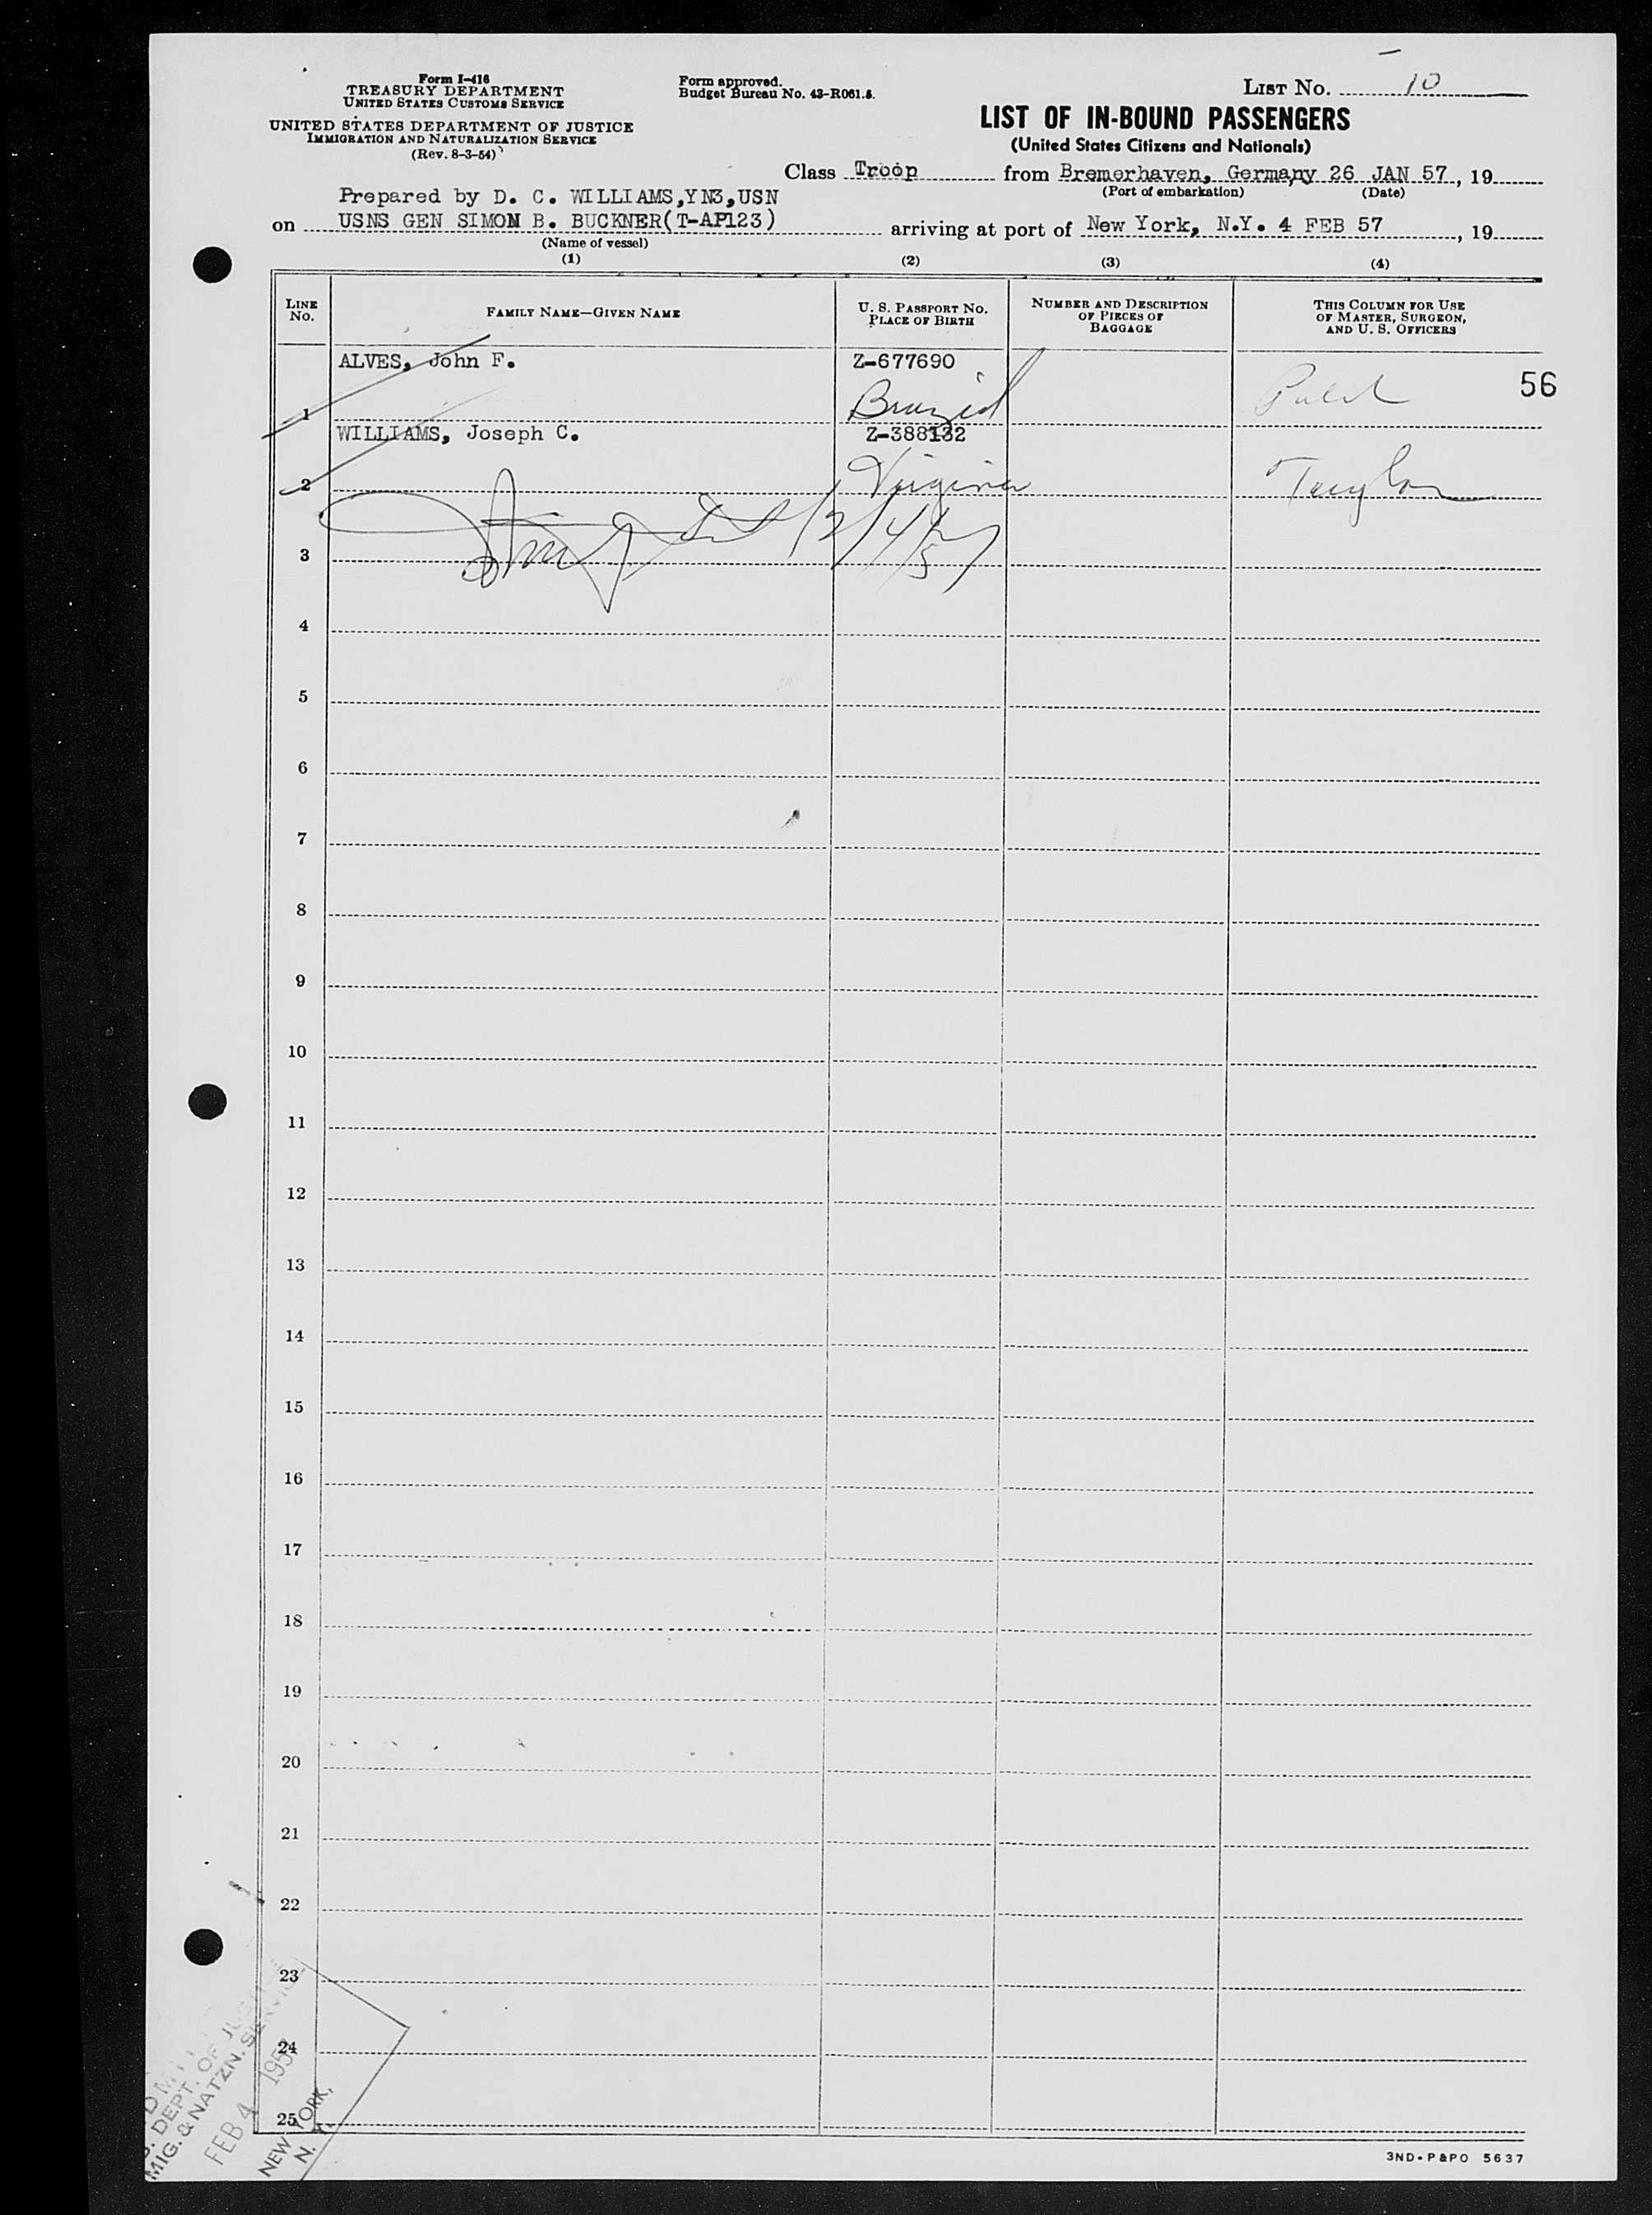 Form I-416
TREASURY DEPARTMENT
UNITED STATES CUSTOMS SERVICE
UNITED STATES DEPARTMENT OF JUSTICE
IMMIGRATION AND NATURALIZATION SERVICE
(Rev. 8-3-54)
Form approved.
Budget Bureau No. 43-R061.5.
LIST No. 10
LIST OF IN-BOUND PASSENGERS
(United States Citizens and Nationals)
Class Troop from Bremerhaven, Germany 26 JAN 57, 19
(Port of embarkation) (Date)
Prepared by D. C. WILLIAMS,YN3,USN
on USNS GEN SIMON B. BUCKNER(T-AP123) arriving at port of New York, N.Y. 4 FEB 57, 19
(Name of vessel)
(1) (2) (3) (4)
LINE No. FAMILY NAME—GIVEN NAME U. S. PASSPORT NO. PLACE OF BIRTH NUMBER AND DESCRIPTION OF PIECES OF BAGGAGE THIS COLUMN FOR USE OF MASTER, SURGEON, AND U. S. OFFICERS
ALVES, John F. Z-677690
56
1 Brazil
WILLIAMS, Joseph C. Z-388132
2 Virginia Taylor
2/4/57
3
4
5
6
7
8
9
10
11
12
13
14
15
16
17
18
19
20
21
22
23
24
25
DEPT. OF JUSTICE
MIG. & NATZN. SERVICE
FEB 4 1957
NEW YORK, N. Y.
3ND-P&PO 5637